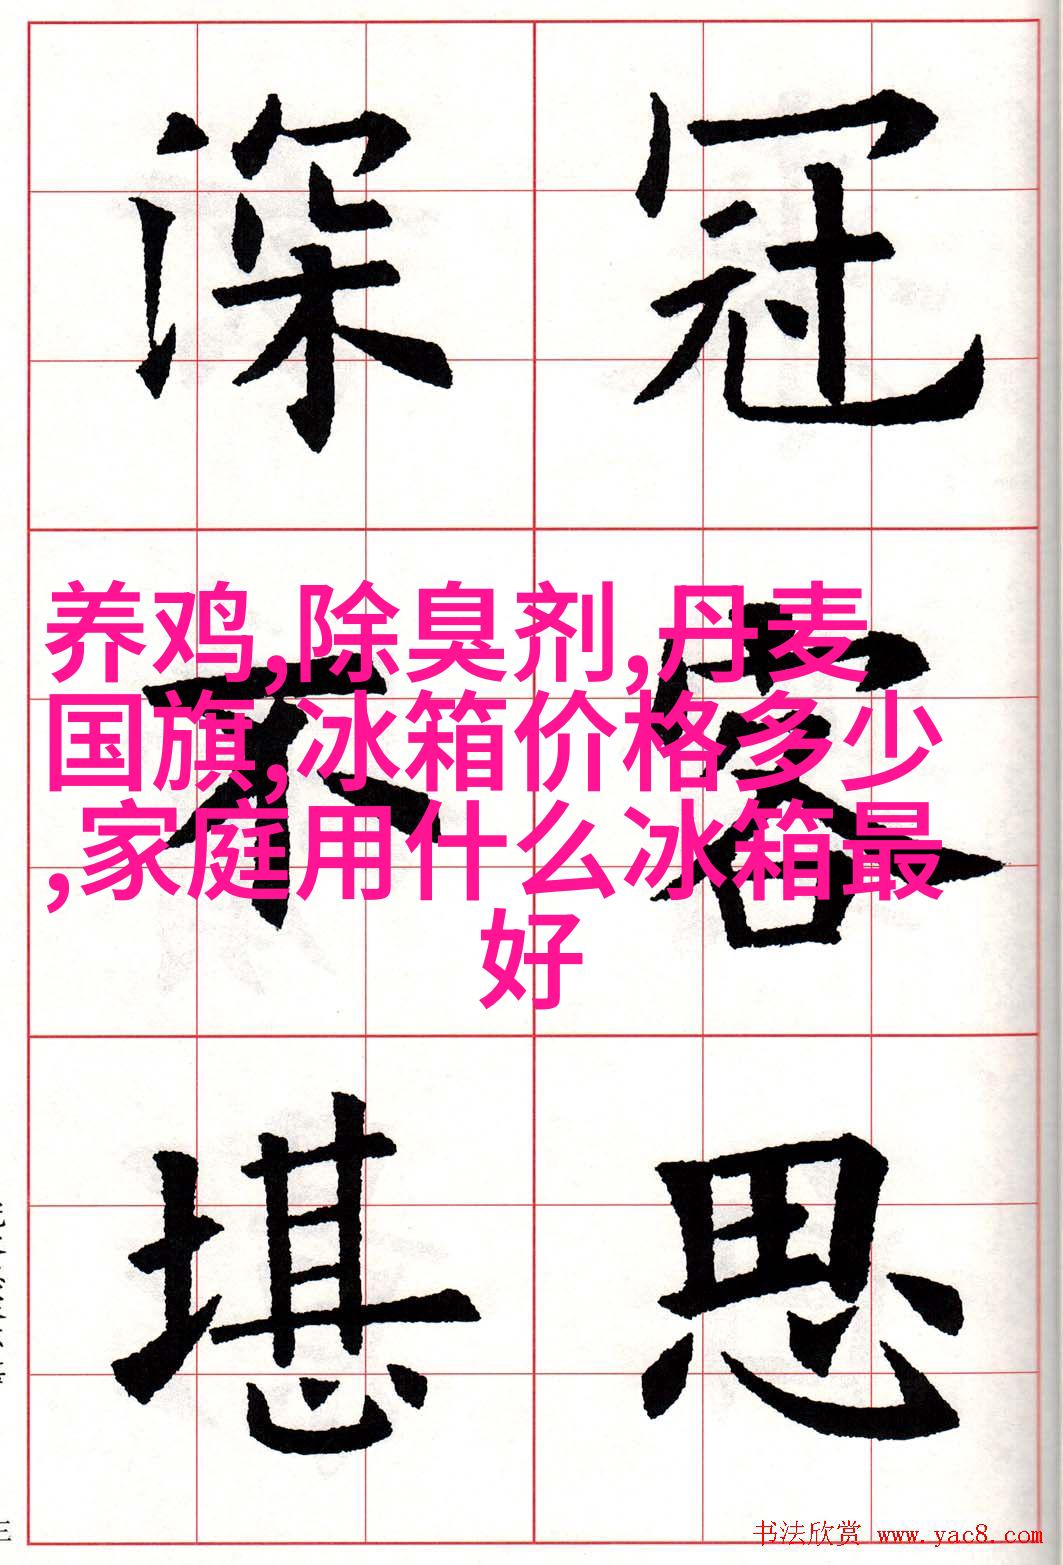 冠容思
深不堪
养鸡,除臭剂,丹麦
国旗,冰箱价格多少
,家庭用什么冰箱最
好
书法欣赏 www.yac8.com